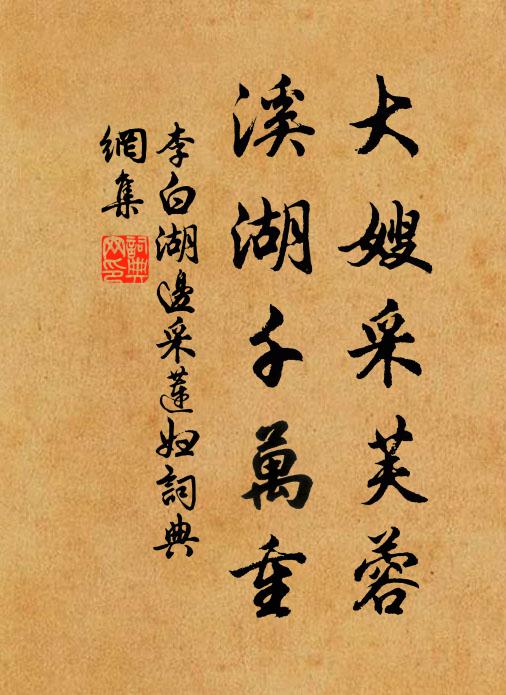 大嫂采芙蓉
溪湖千萬重
李白湖邊采蓮婦詞典
網集
詞典
网印